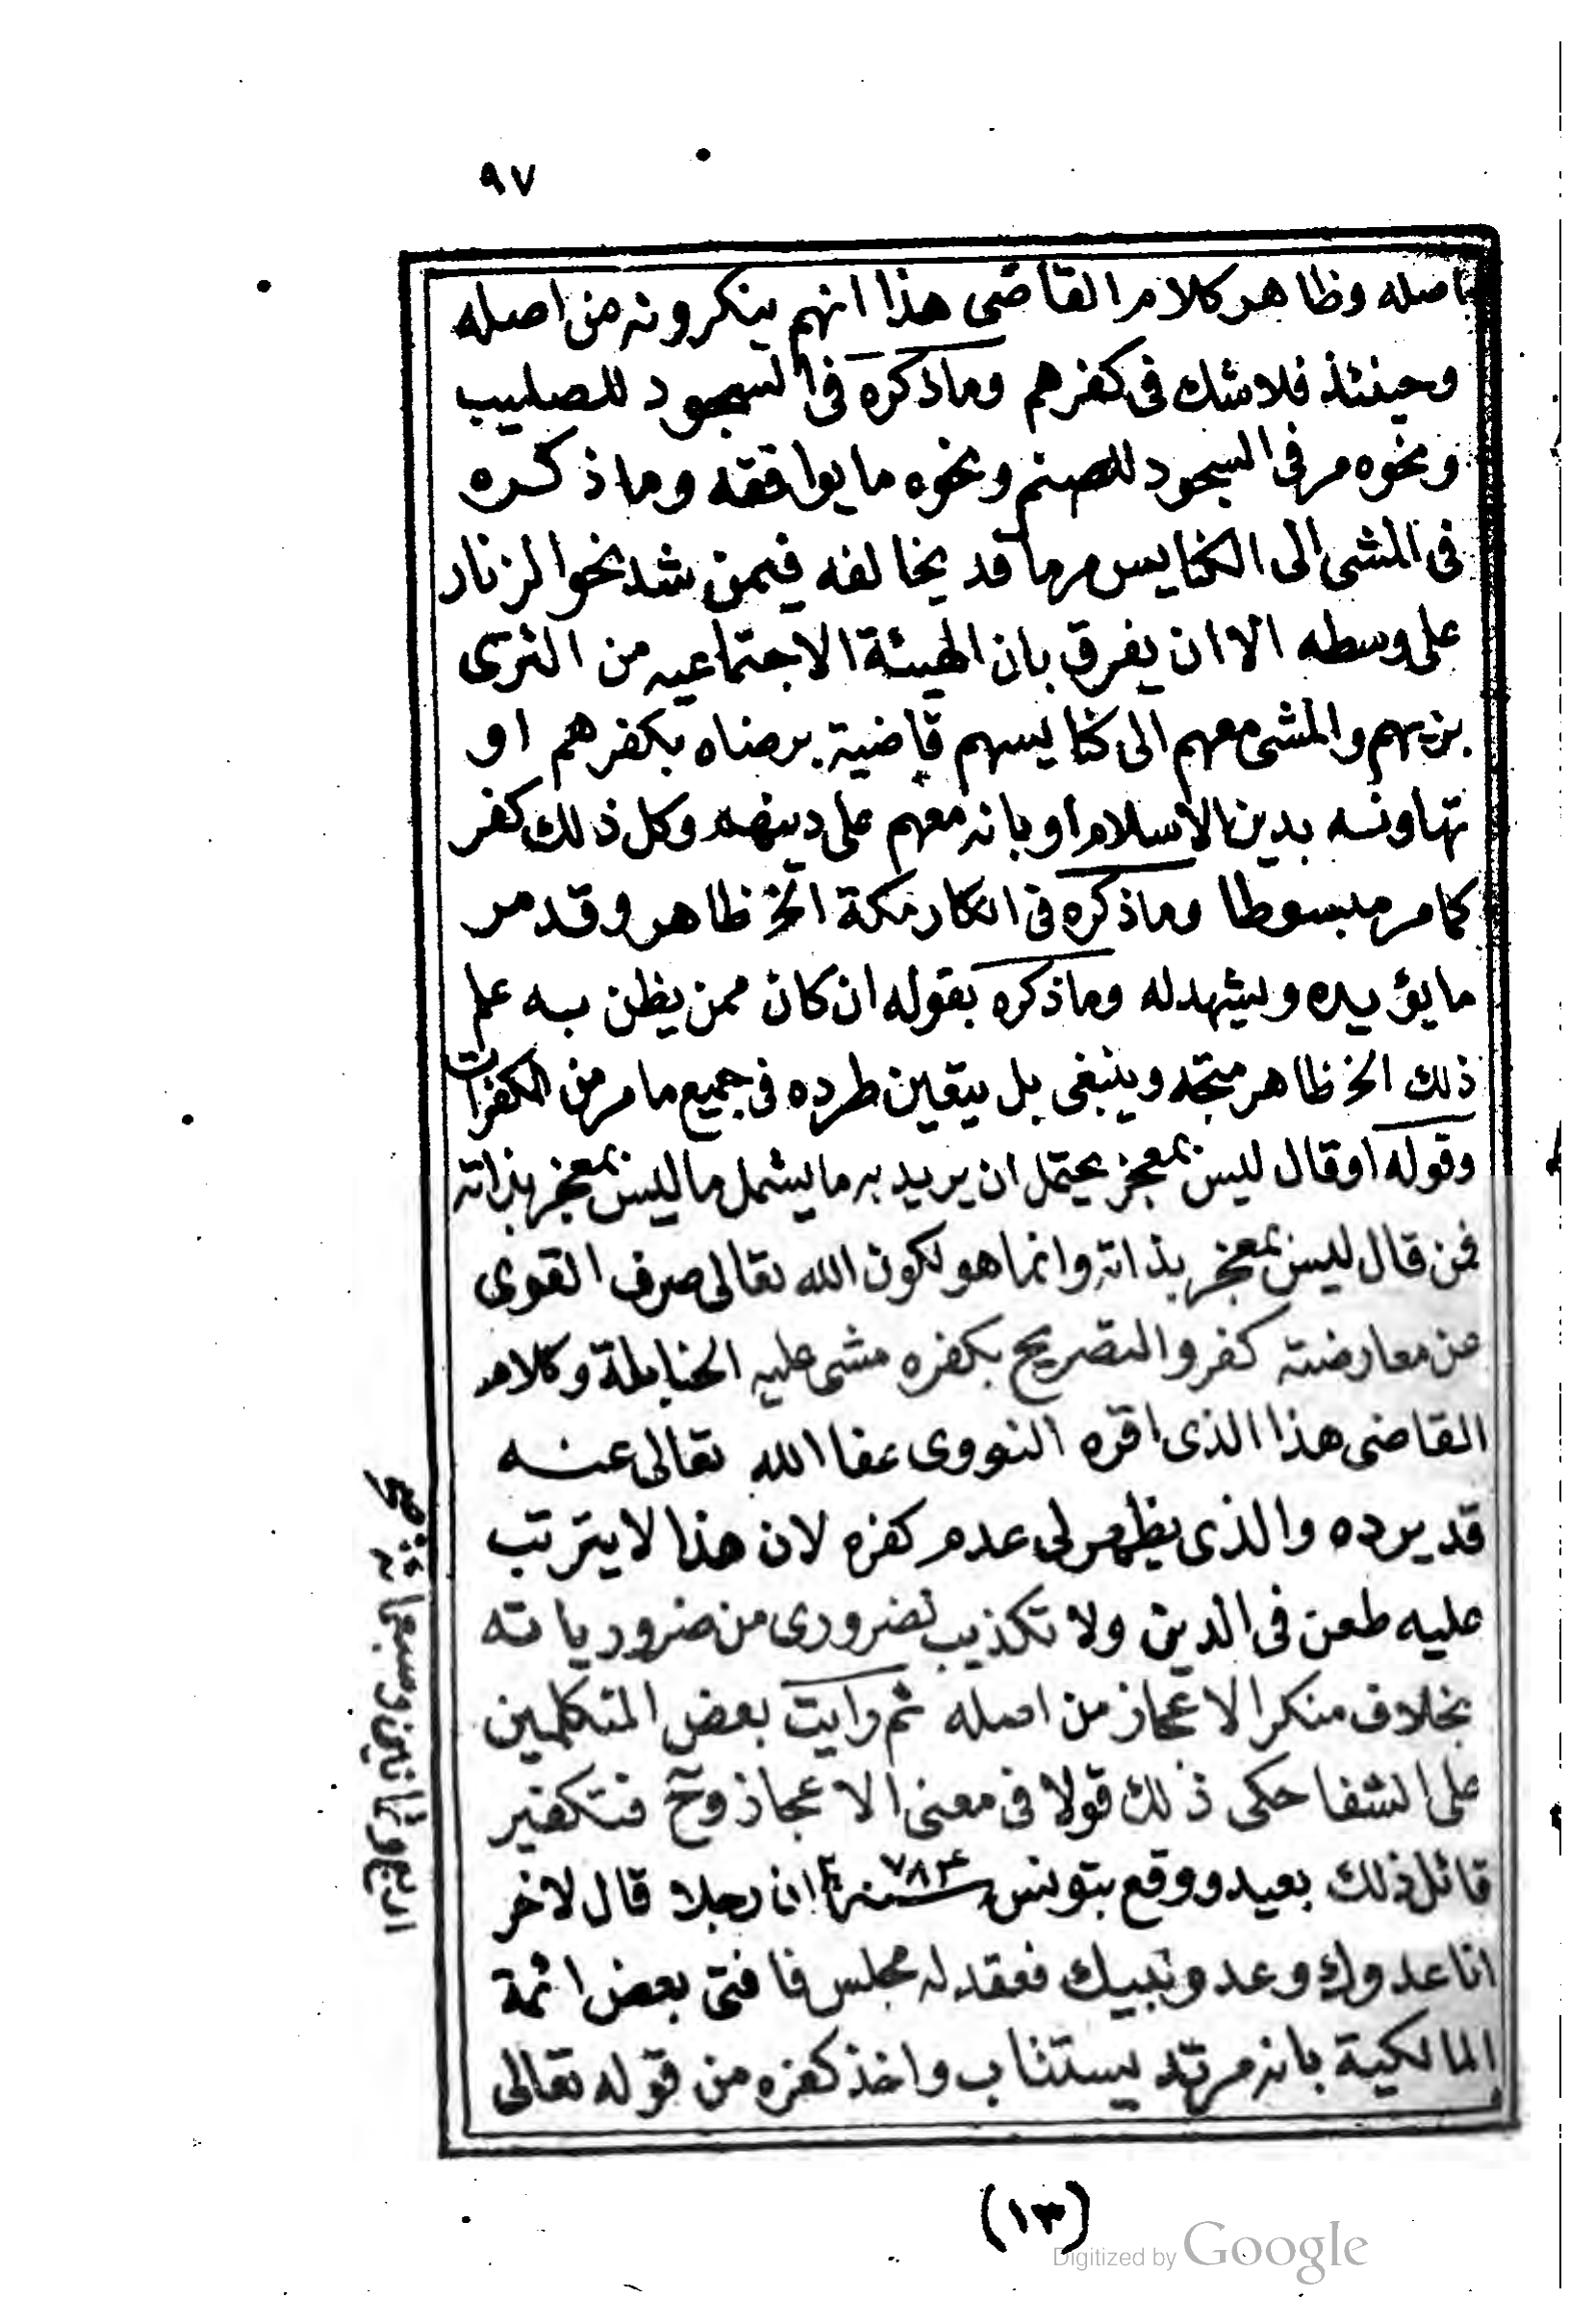 ٩٧
اصله وظاهر كلام القاضى هذا انهم ينكرونه من اصله
وحينئذ فلاشك فى كفرهم وماذكره فى السجود للصليب
ونحوه مر فى السجود للصنم ونحوه ما يوافقه وماذكره
فى المشى الى الكنايس مر ما قد يخالفه فيمن شد نحو الزنار
على وسطه الا ان يفرق بان الهيئة الاجتماعيه من التزى
بزيهم والمشى معهم الى كنايسهم قاضية برضاه بكفرهم او
تهاونه بدين الاسلام او بانه معهم على دينهم وكل ذلك كفر
كما مر مبسوطا وماذكره فى انكار مكة الخ ظاهر وقد مر
ما يؤيده ويشهد له وماذكره بقوله ان كان ممن يظن به علم
ذلك الخ ظاهر متجه وينبغى بل يتعين طرده فى جميع ما مر من المكفرات
وقوله او قال ليس بمعجز يحتمل ان يريد به ما يشمل ما ليس بمعجز بذاته
فمن قال ليس بمعجز بذاته وانما هو لكون الله تعالى صرف القوى
عن معارضته كفر والتصريح بكفره مشى عليه الحنابلة وكلام
القاضى هذا الذى اقره النووى عفا الله تعالى عنه
قد يرده والذى يظهر لى عدم كفره لان هذا لا يترتب
عليه طعن فى الدين ولا تكذيب لضرورى من ضرورياته
بخلاف منكر الاعجاز من اصله ثم رايت بعض المتكلمين
على الشفا حكى ذلك قولا فى معنى الاعجاز وح فتكفير
قائل ذلك بعيد ووقع بتونس سنة ٧٨٤ ان رجلا قال لاخر
انا عدوك وعدو نبيك فعقد له مجلس فافتى بعض ائمة
المالكية بانه مرتد يستتاب واخذ كفره من قوله تعالى
اربع وثمانين وسبعمائة صح
(١٣)
Digitized by Google